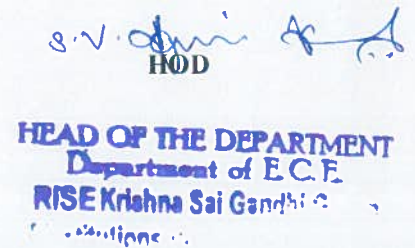 S.V.
HOD
HEAD OF THE DEPARTMENT
Department of E.C.E.
RISE Krishna Sai Gandhi